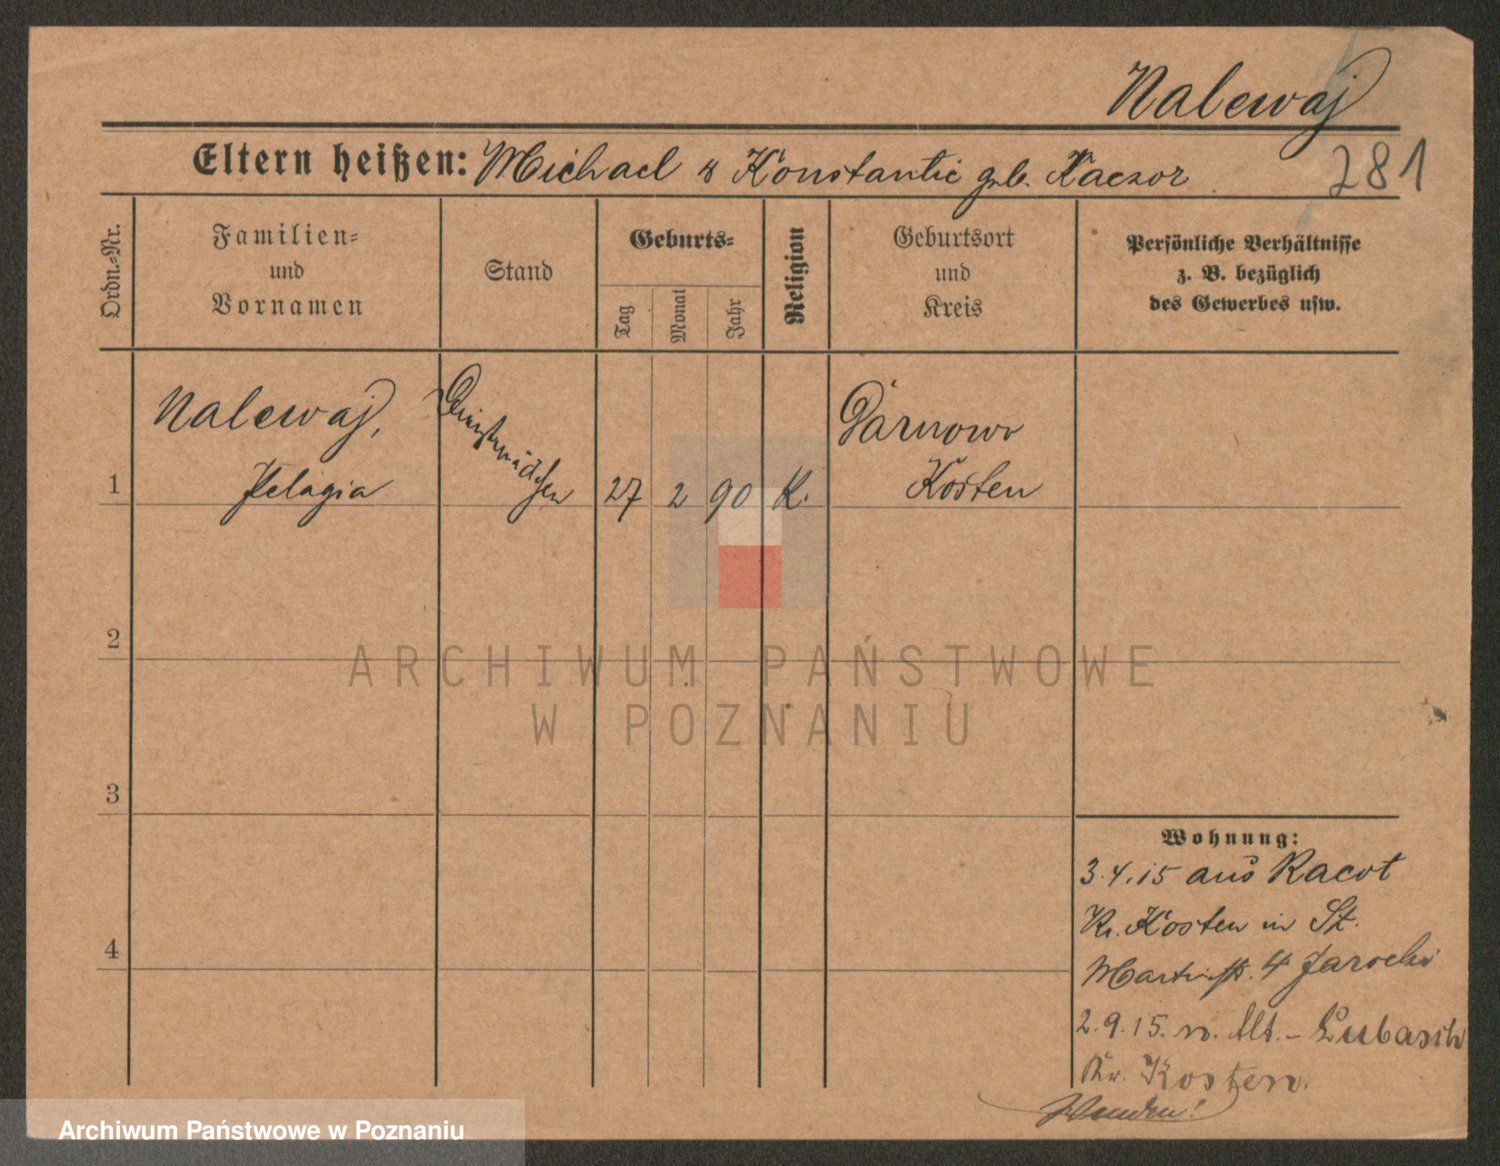 Nalewaj
Eltern heißen: Michael & Konstantie geb. Kaczor
281
Ordn.-Nr.
Familien-
und
Vornamen
Stand
Geburts-
Tag
Monat
Jahr
Religion
Geburtsort
und
Kreis
Persönliche Verhältnisse
z. B. bezüglich
des Gewerbes usw.
1
Nalewaj,
Pelagia
Dienstmädchen
27 2 90 K.
Darnowo
Kosten
2
3
4
Wohnung:
3.4.15 aus Racot
Kr. Kosten in St.
Martinstr. 4 Jarocki
2.9.15. n. Alt.- Lubasch
Kr. Kosten.
Wenden!
ARCHIWUM PAŃSTWOWE
W POZNANIU
Archiwum Państwowe w Poznaniu